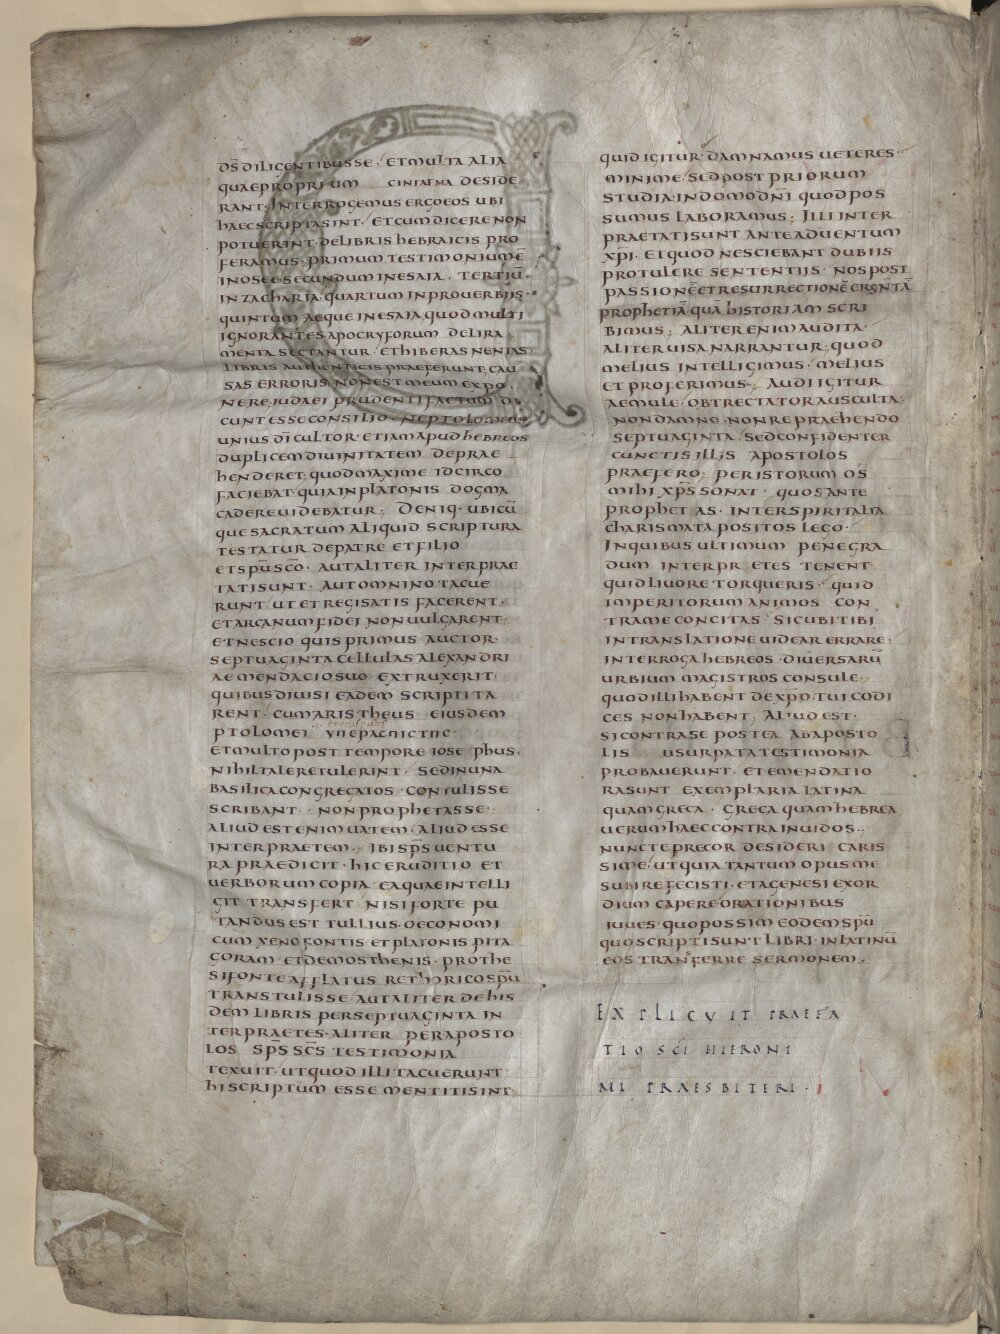 ds̄ diligentibus se · et multa alia
quae propri um ciniatma deside
rant; Interrogemus ergo eos ubi
haec scripta sint · et cum dicere non
potuerint · de libris hebraicis pro
feramus · primum testimonium ē
in osee · secundum in esaia · tertiū ·
in zacharia · quartum in prouerbiis ·
quintum aeque in esaia quod multi
ignorantes apocryforum delira
menta sectantur · et hiberas nenias
libris authenticis praeferunt; cau
sas erroris non est meum expo
nere iudaei prudenti factum di
cunt esse consilio · ne ptolomeus
unius dī cultor · etiam apud hebreos
duplicem diuinitatem depræ
henderet; quod maxime idcirco
faciebat · quia in platonis dogma
cadere uidebatur; deniq· ubicū
que sacratum aliquid scriptura
testatur de patre et filio
et spū sco · aut aliter interprae
tati sunt · aut omnino tacue
runt · ut et regi satis facerent ·
et arcanum fidei non uulgarent ·
et nescio quis primus auctor ·
septuaginta cellulas alexandri
ae mendacio suo extruxerit ·
quibus diuisi eadem scriptita
rent · cum aristheus eiusdem
ptolomei
et multo post tempore iosephus ·
nihil tale retulerint · sed in una
basilica congregatos contulisse
scribant · non prophetasse ·
aliud est enim uatem · aliud esse
interpraetem · Ibi sp̄s uentu
ra praedicit · hic eruditio et
uerborum copia ea quae intelli
git transfert nisi forte pu
tandus est tullius · oeconomi
cum xenofontis et platonis pita
goram · et demosthenis · prothe
sifonte afflatus rethorico spū
transtulisse aut aliter de his
dem libris per septuaginta in
terpraetes · aliter per aposto
los sp̄s sc̄s testimonia
texuit · ut quod illi tacuerunt
hi scriptum esse mentiti sint
quid igitur · damnamus ueteres ·
minime · sed post priorum
studia · in domo dn̄i quod pos
sumus laboramus; Illi inter
praetati sunt ante aduentum
xp̄i · et quod nesciebant dubiis
protulere sententiis · nos post
passionē et resurrectionē eius n̄ tā
prophetiā quā historiam scri
bimus; aliter enim audita ·
aliter uisa narrantur; quod
melius intelligimus · melius
et proferimus; Audi igitur
aemule · obtrectator ausculta ·
non damno · non repraehendo
septuaginta · sed confidenter
cunctis illis apostolos
praefero; per istorum os
mihi xp̄s sonat · quos ante
prophetas · inter spiritalia
charismata positos lego ·
In quibus ultimum pene gra
dum interpretes tenent ·
quid liuore torqueris · quid
imperitorum animos con
tra me concitas · sicubi tibi
in translatione uidear errare ·
interroga hebreos · diuersarū
urbium magistros consule ·
quod illi habent de xp̄o · tui codi
ces non habent; aliud est ·
si contra se postea ab aposto
lis usurpata testimonia
probauerunt · et emendatio
ra sunt exemplaria latina
quam greca · greca quam hebrea
uerum haec contra inuidos ·,
nunc te precor desideri caris
sime · ut quia tantum opus me
subire fecisti · et a genesi exor
dium capere · orationibus
iuues · quo possim eodem spū
quo scripti sunt libri · in latinū
eos transferre sermonem;
EXPLICVIT PRAEFA
TIO SC̄I HIERONI
MI PRAESBITERI ·